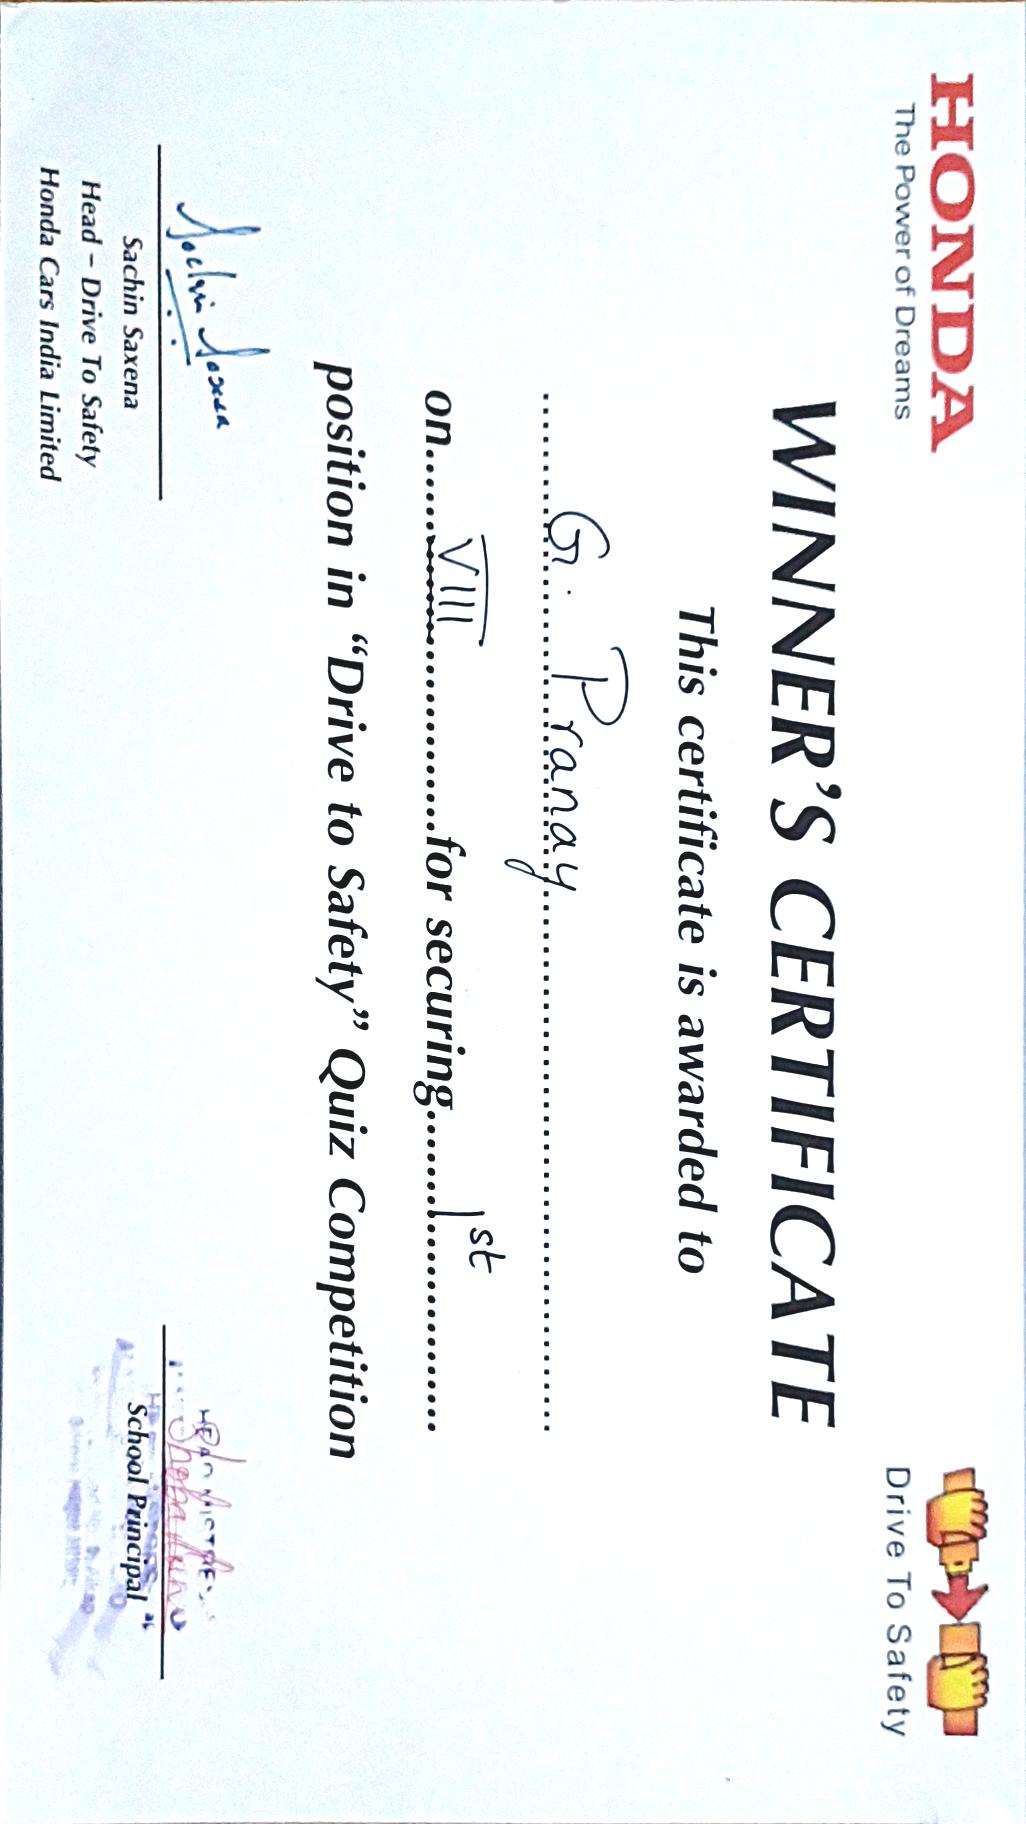 HONDA
The Power of Dreams
Drive To Safety
WINNER'S CERTIFICATE
This certificate is awarded to
G. Pranay
on VIII for securing 1st
position in “Drive to Safety” Quiz Competition
Sachin Saxena
Sachin Saxena
Head – Drive To Safety
Honda Cars India Limited
HEAD MISTRESS
School Principal